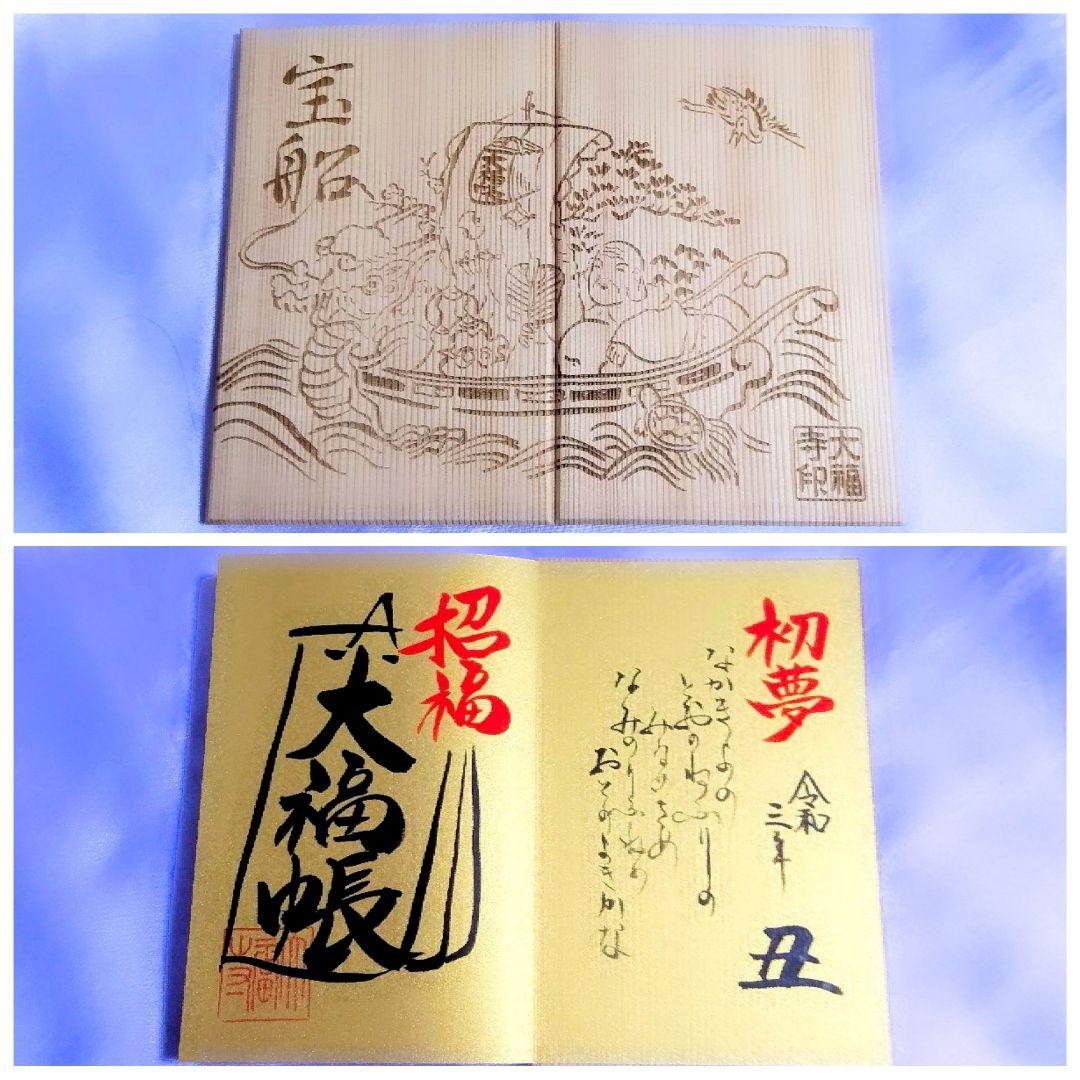 宝船
大福
寺印
初夢
令和
三年
丑
なかきよの
ねふりの
みなめさめ
なみのりふねの
おとのよきかな
招福
大福帳